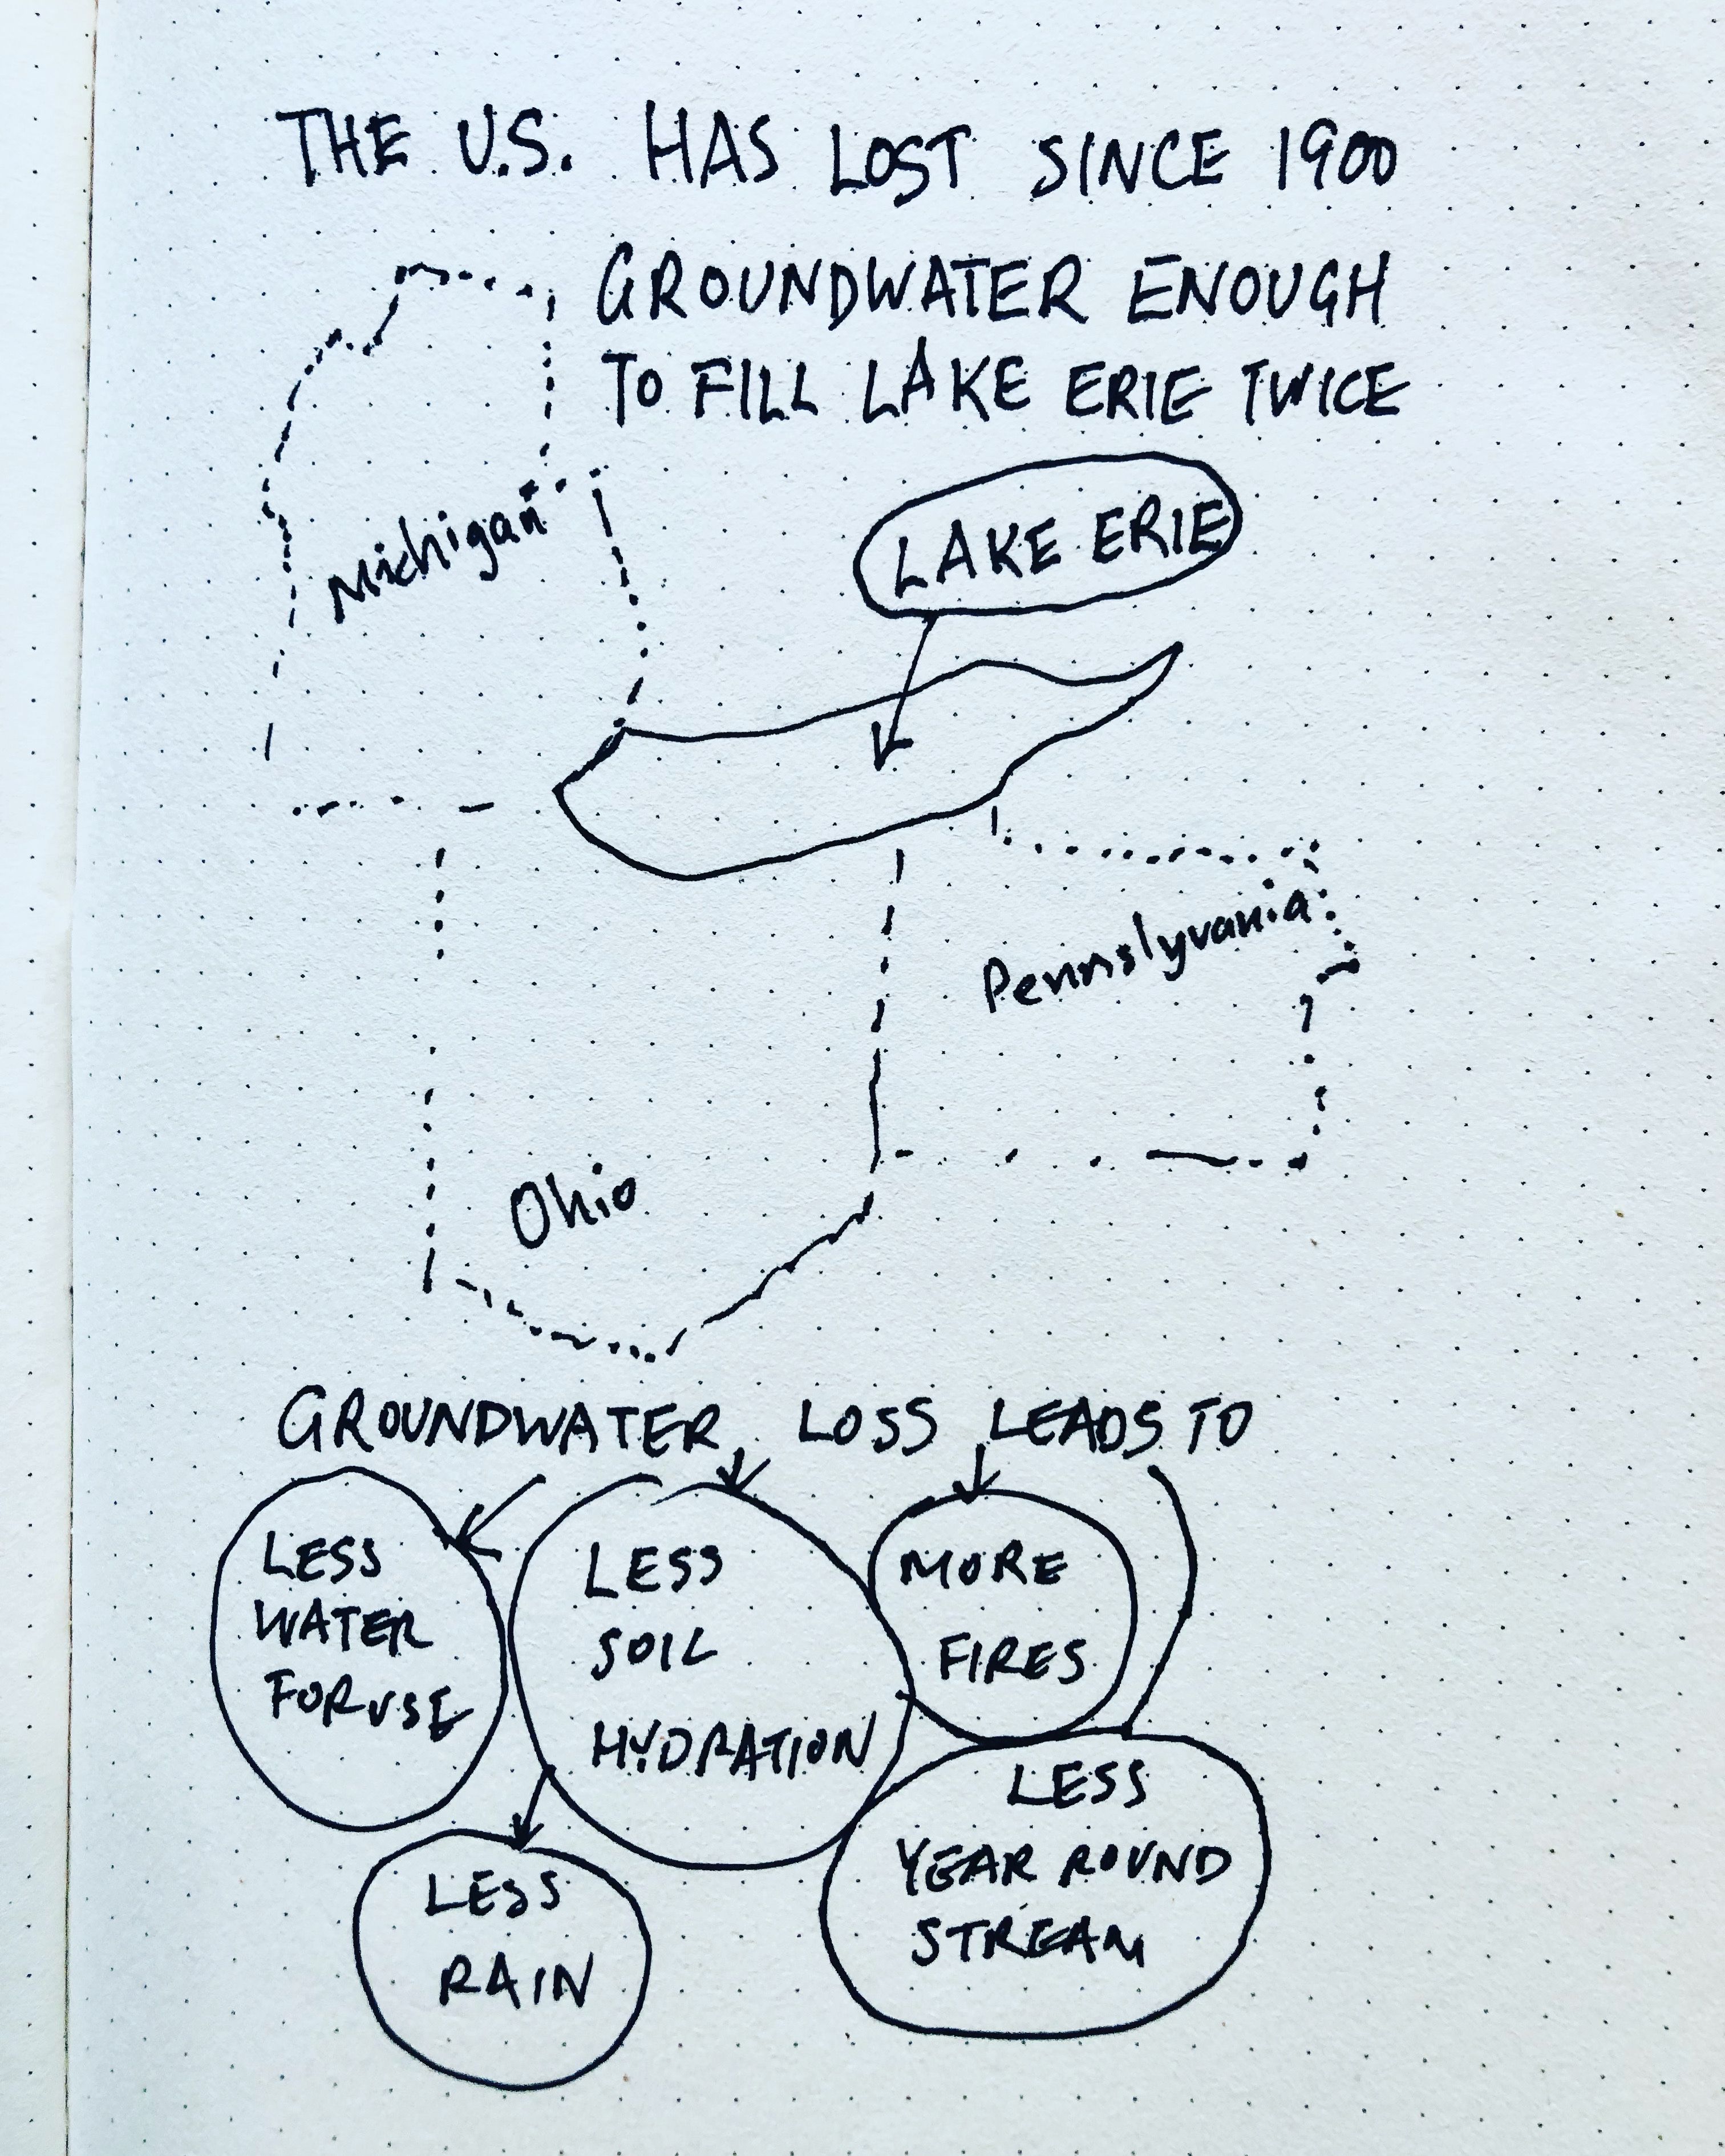 THE U.S. HAS LOST SINCE 1900
GROUNDWATER ENOUGH
TO FILL LAKE ERIE TWICE
Michigan
LAKE ERIE
Pennslyvania
Ohio
GROUNDWATER LOSS LEADS TO
LESS
WATER
FOR USE
LESS
SOIL
HYDRATION
MORE
FIRES
LESS
RAIN
LESS
YEAR ROUND
STREAM